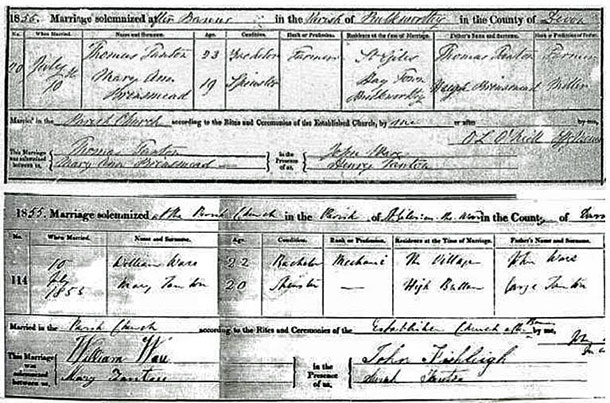 1856. Marriage solemnized after Banns in the Parish of Bulkworthy in the County of Devon
No. When Married. Name and Surname. Age. Condition. Rank or Profession. Residence at the time of Marriage. Father's Name and Surname. Rank or Profession of Father.
20 July 10 Thomas Tanton 23 Bachelor Farmer St Giles Thomas Tanton Farmer
Mary Ann Brinsmead 19 Spinster Bulkworthy Brinsmead Miller
Married in the Parish Church according to the Rites and Ceremonies of the Established Church, by me or after by me,
This Marriage was solemnized between us, Thomas Tanton in the Presence of us, John
Mary Ann Brinsmead Henry Tanton
1855. Marriage solemnized at the Parish Church in the Parish of St Giles in the Wood in the County of Devon
No. When Married. Name and Surname. Age. Condition. Rank or Profession. Residence at the Time of Marriage. Father's Name and Surname.
114 10 William Ware 22 Bachelor Mechanic The Village John Ware
1855 Mary Tanton 20 Spinster — High Bullen George Tanton
Married in the Parish Church according to the Rites and Ceremonies of the Established Church after Banns by me,
This Marriage was solemnized between us, William Ware in the Presence of us, John Fishleigh
Mary Tanton Sarah Tanton